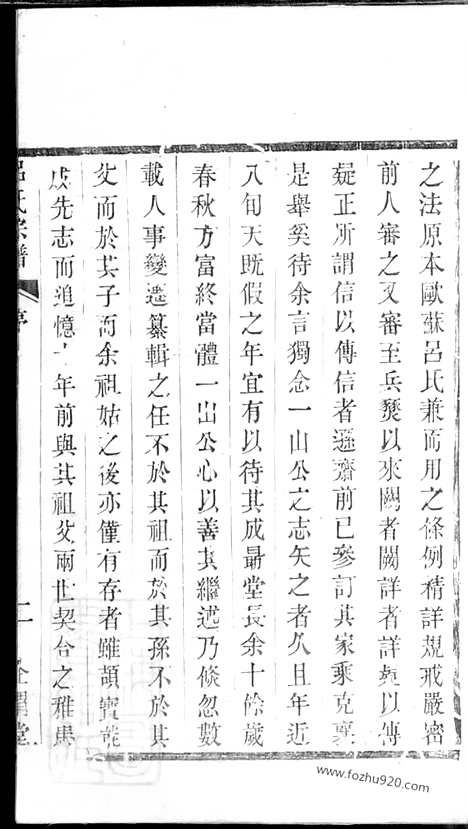 之法原本歐蘇呂氏兼而用之條例精詳規戒嚴密
前人審之又審至兵燹以來闕者闕詳者詳疑以傳
疑正所謂信以傳信者遜齋前已參訂其家乘克襄
是舉奚待余言獨念一山公之志矢之者久且年近
八旬天既假之年宜有以待其成最堂長余十餘歲
春秋方富終當體一出公心以善其繼述乃倏忽數
載人事變遷纂輯之任不於其祖而於其孫不於其
父而於其子而余祖姑之後亦僅有存者雖頡寶花
成先志而追憶十年前與其祖父兩世契合之雅思
呂氏宗譜
序
二
www.fozhu920.com